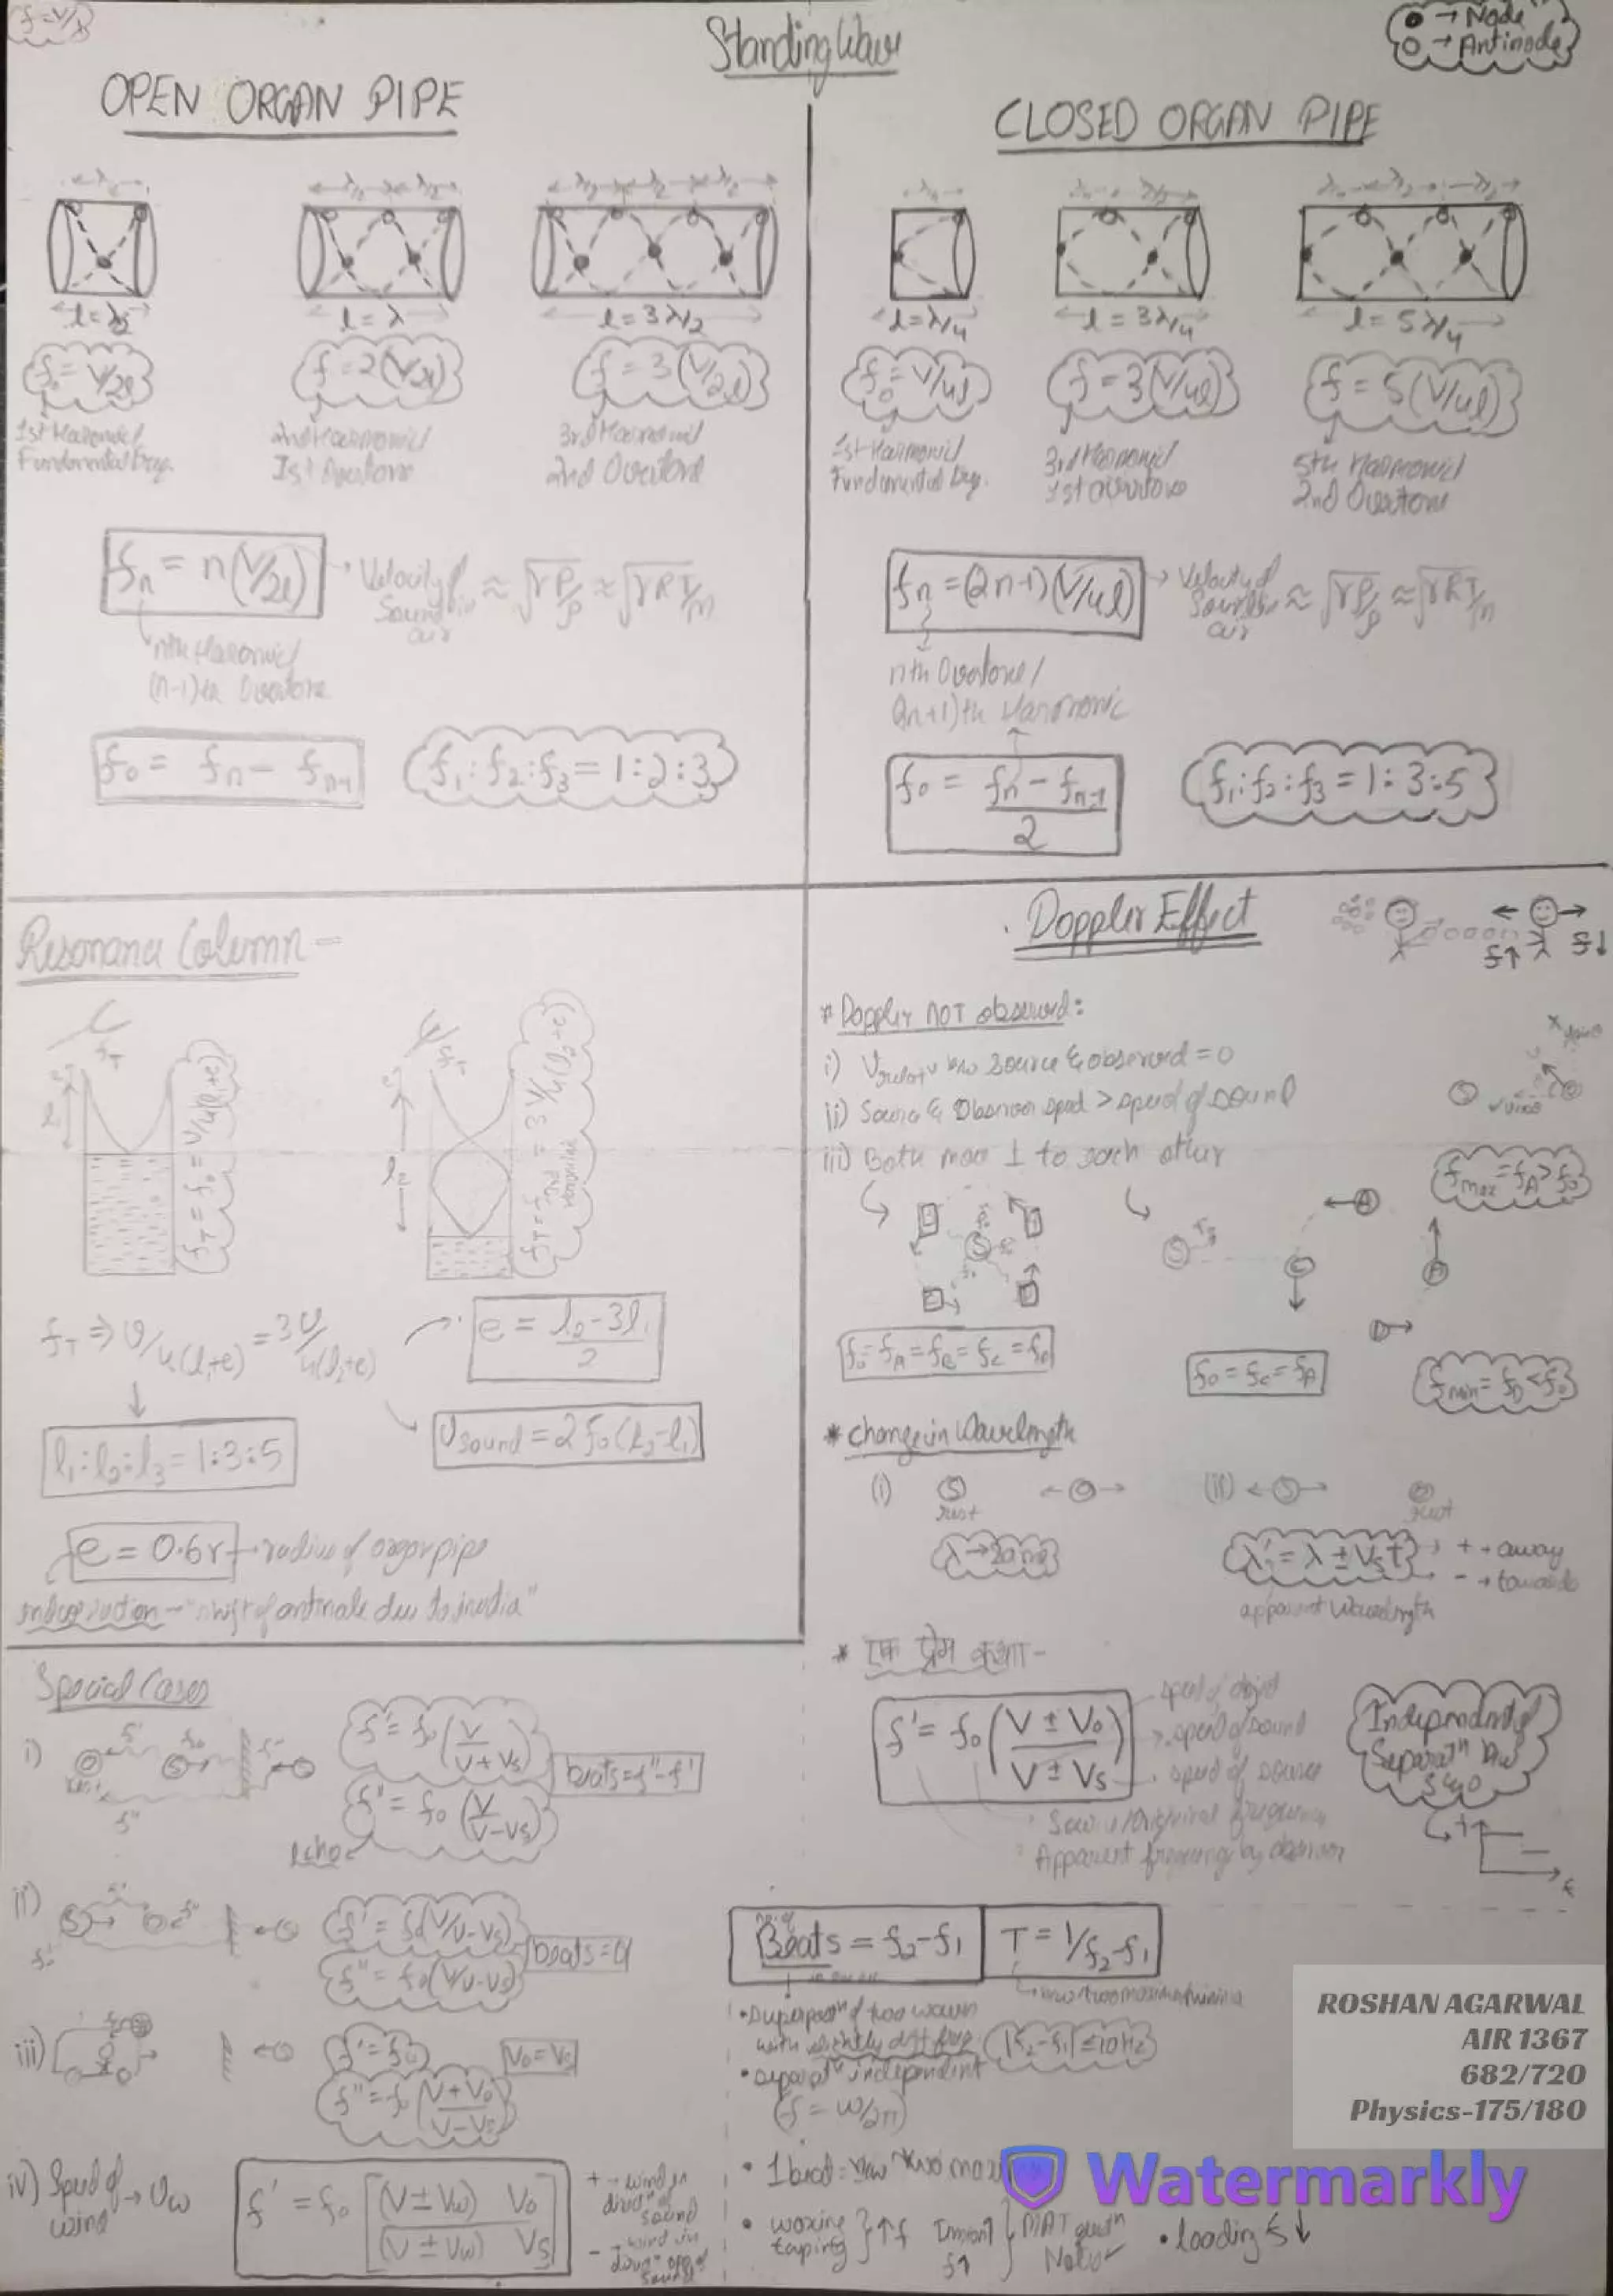 f=V/λ
Standing Wave
● → Node
○ → Antinode
OPEN ORGAN PIPE
λ/2
λ/2 λ/2
λ/2 λ/2 λ/2
l=λ/2
l=λ
l=3λ/2
f₀=V/2l
f=2(V/2l)
f=3(V/2l)
1st Harmonic/
Fundamental freq.
2nd Harmonic/
1st Overtone
3rd Harmonic/
2nd Overtone
fn = n(V/2l) → Velocity of Sound in air ≈ √γP/ρ ≈ √γRT/m
nth Harmonic/
(n-1)th Overtone
f₀ = fn - fn-1
f₁:f₂:f₃=1:2:3
CLOSED ORGAN PIPE
l=λ/4
l=3λ/4
l=5λ/4
f₀=V/4l
f=3(V/4l)
f=5(V/4l)
1st Harmonic/
Fundamental freq.
3rd Harmonic/
1st overtone
5th Harmonic/
2nd Overtone
fn=(2n-1)(V/4l) → Velocity of Sound in air ≈ √γP/ρ ≈ √γRT/m
nth Overtone/
(2n+1)th Harmonic
f₀ = fn - fn-1 / 2
f₁:f₂:f₃=1:3:5
Resonance Column -
fT = f₀ = V/4(l₁+e)
3V/4(l₂+e)
fT ⇒ V/4(l₁+e) = 3V/4(l₂+e)
e = l₂-3l₁ / 2
l₁:l₂:l₃=1:3:5
Vsound=2f₀(l₂-l₁)
e = 0.6r → radius of organ pipe
"shift of antinode due to inertia"
Doppler Effect
f↑ f↓
* Doppler NOT observed:
i) Vrelativ b/w Source & observed = 0
ii) Source & Observer speed > speed of sound
iii) Both move ⊥ to each other
fmax=fA>f₀
f₀=fA=fB=fC=fD
f₀=fC=fA
fmin=fD<f₀
* Change in Wavelength
(i) S rest ←O→
(ii) ←S→ O rest
λ→same
λ'=λ±VsT + → away
- → towards
apparent Wavelength
* एक प्रेम कथा -
f'=f₀(V±V₀ / V±Vs)
speed of object
speed of sound
speed of source
Source/Original frequency
Apparent frequency by observer
Independent of
Separatⁿ b/w
S & O
Special Cases
i)
f'=f₀(V/V+Vs)
beats=f"-f'
f"=f₀(V/V-Vs)
Echo
ii)
f'=f₀(V/V-Vs)
beats=0
f"=f₀(V/V-Vs)
iii)
f'=f₀
V₀=Vs
f"=f₀(V+V₀ / V-Vs)
iv) Speed of wind → Vw
f'=f₀[(V±Vw) V₀ / (V±Vw) Vs]
+ → wind in directⁿ of sound
- → wind in directⁿ opp of sound
no. of Beats = f₂-f₁
T=1/f₂-f₁
• Superposⁿ of two waves
with slightly diff freq. |f₂-f₁|≤10Hz
• separatⁿ independent
(f=w/2π)
• 1 beat = b/w two max
• waxing
taping } ↑f
• loading f↓
ROSHAN AGARWAL
AIR 1367
682/720
Physics-175/180
Watermarkly